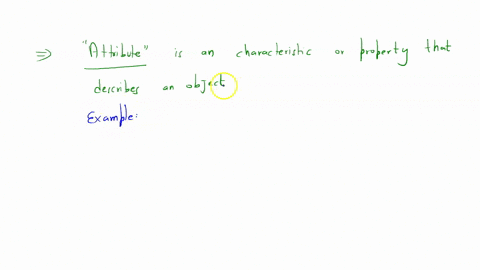 ⇒ "Attribute" is an characteristic or property that
describes an object
Example: